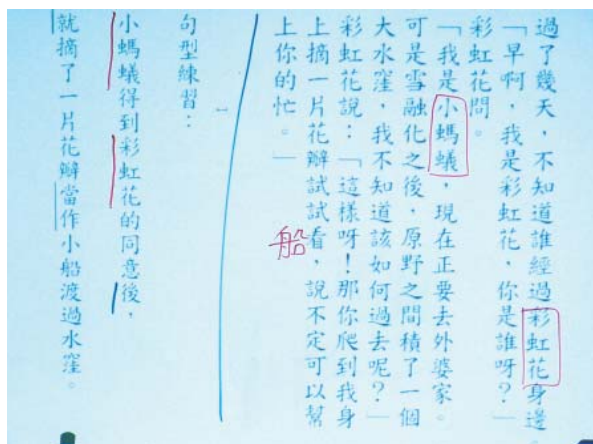 過了幾天，不知道誰經過彩虹花身邊
「早啊，我是彩虹花，你是誰呀？」
彩虹花問。
「我是小螞蟻，現在正要去外婆家。
可是雪融化之後，原野之間積了一個
大水窪，我不知道該如何過去呢？」
彩虹花說：「這樣呀！那你爬到我身
上摘一片花瓣試試看，說不定可以幫
上你的忙。」
船
句型練習：
小螞蟻得到彩虹花的同意後，
就摘了一片花瓣當作小船渡過水窪。